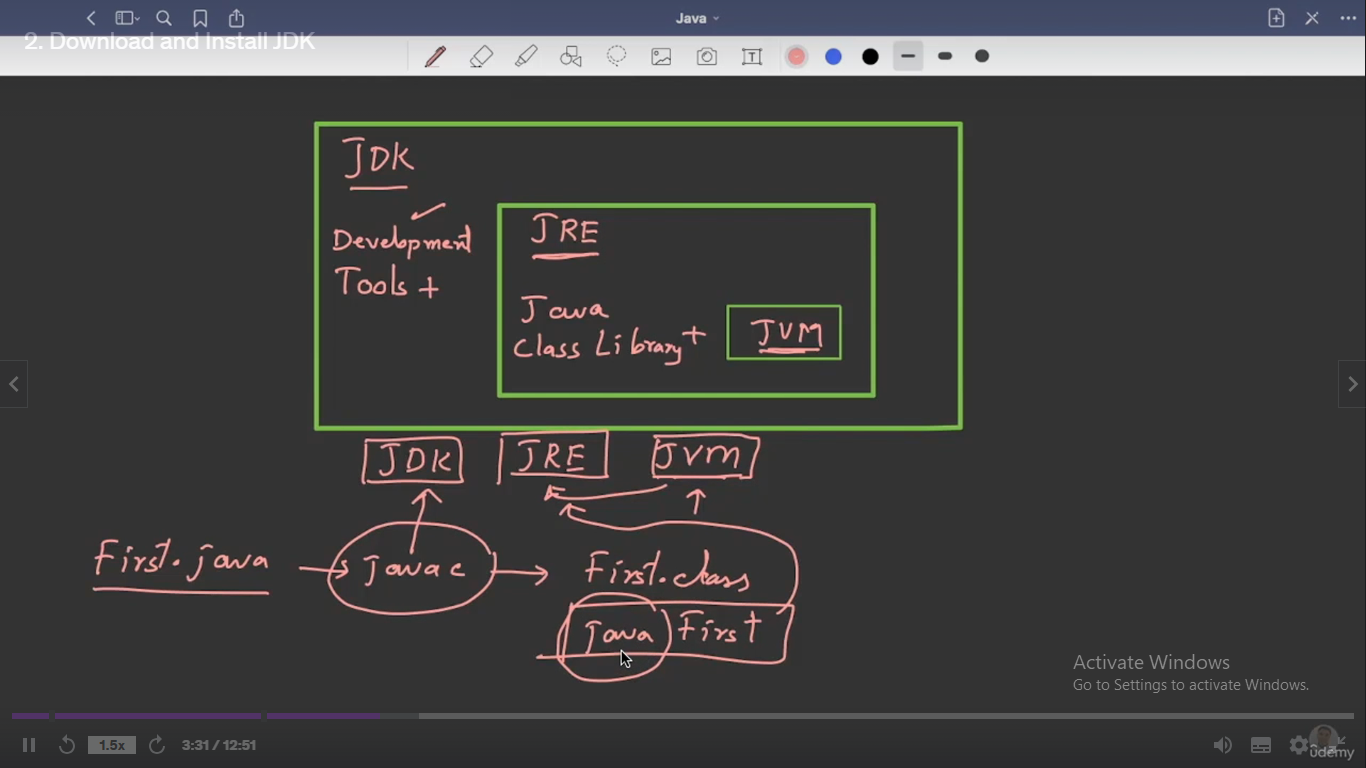 Java
2. Download and Install JDK
T
JDK
Development
Tools +
JRE
Java
Class Library +
JVM
JDK
JRE
JVM
First.java
javac
First.class
java First
Activate Windows
Go to Settings to activate Windows.
1.5x
3:31 / 12:51
ûdemy